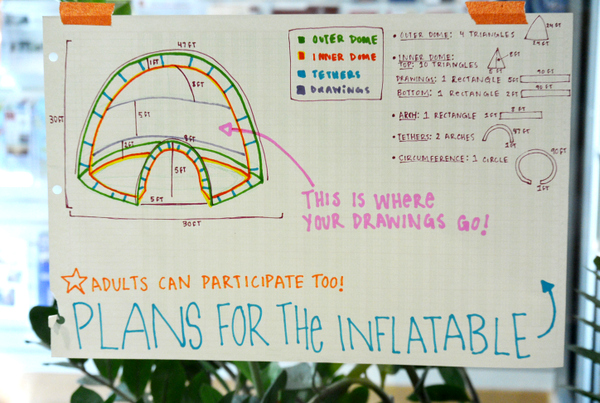 47 FT
30 FT
1 FT
8 FT
5 FT
2 FT
8 FT
5 FT
5 FT
30 FT
OUTER DOME
INNER DOME
TETHERS
DRAWINGS
OUTER DOME: 4 TRIANGLES
INNER DOME:
TOP: 10 TRIANGLES
8 FT
DRAWINGS: 1 RECTANGLE 5 FT
90 FT
BOTTOM: 1 RECTANGLE 2 FT
90 FT
ARCH: 1 RECTANGLE 1 FT
8 FT
TETHERS: 2 ARCHES
47 FT
1 FT
CIRCUMFERENCE: 1 CIRCLE
90 FT
1 FT
THIS IS WHERE
YOUR DRAWINGS GO!
ADULTS CAN PARTICIPATE TOO!
PLANS FOR THE INFLATABLE